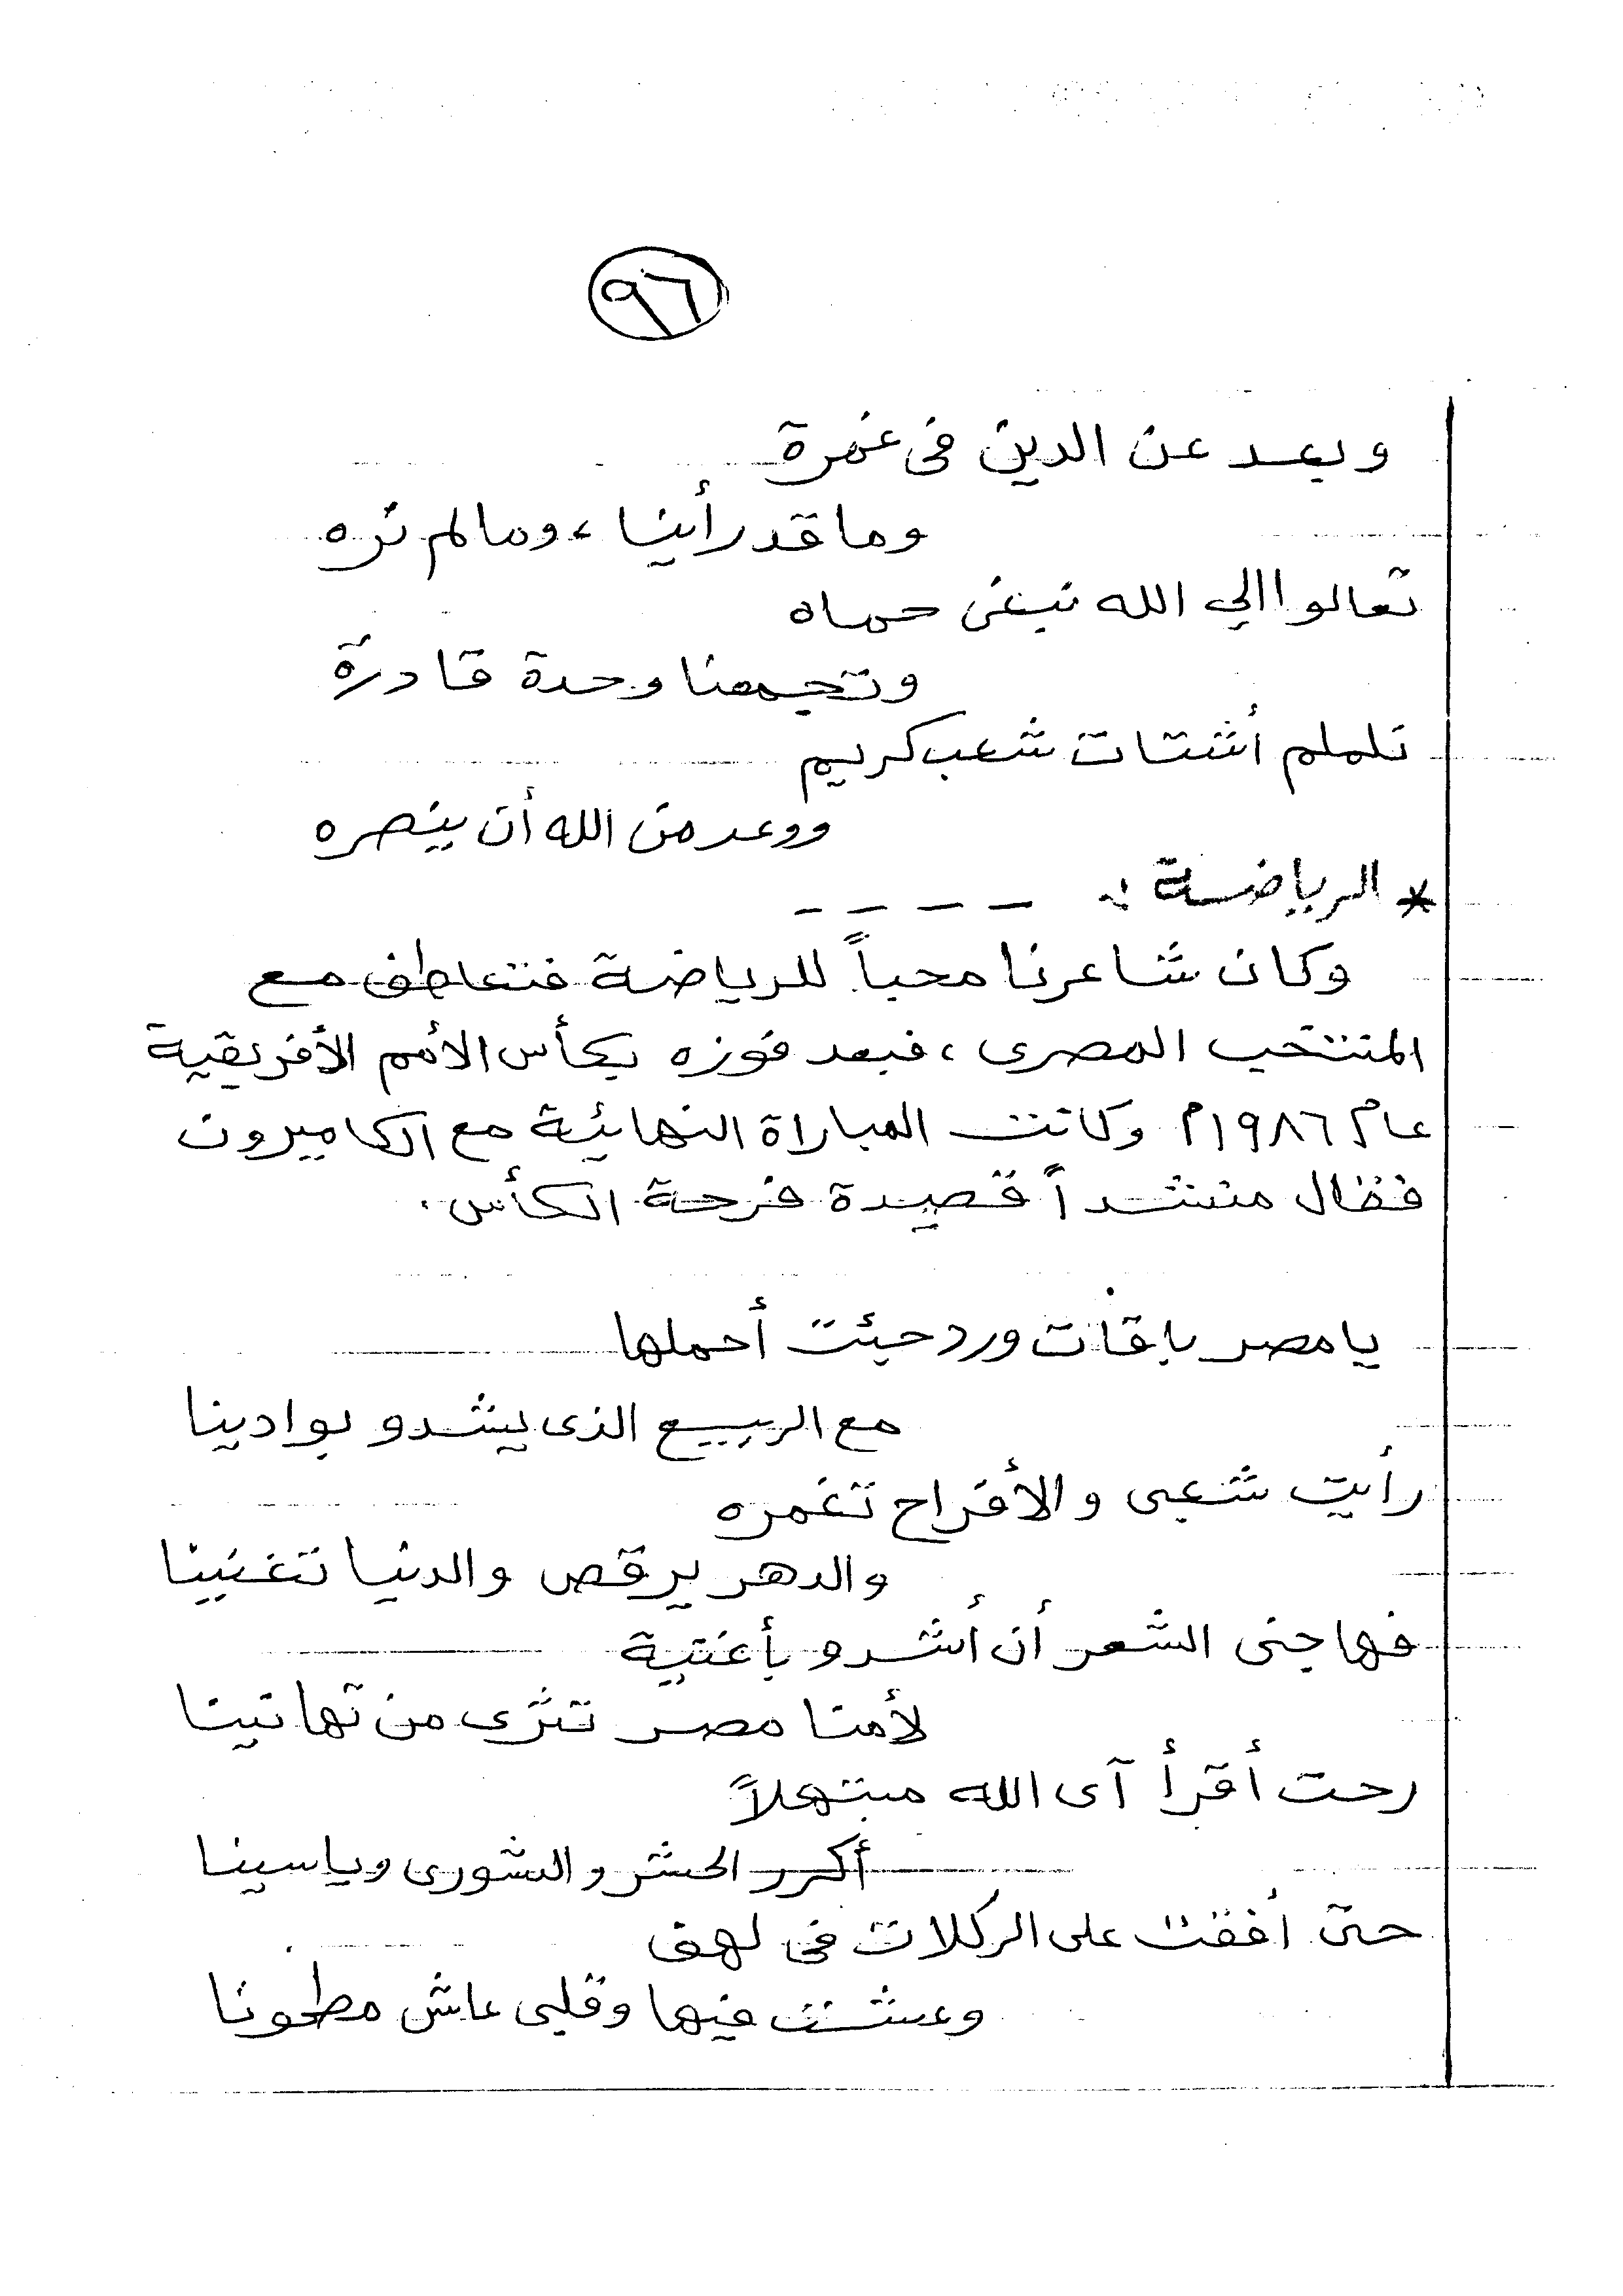 ٩٦
وبعد عن الدين فى غمرة
وما قد رأينا ، وما لم نره
تعالوا الي الله نبغى حماه
وتجمعنا وحدة قادرة
نلملم أشتات شعب كريم
ووعد من الله أن ينصره
* الرياضة : ـ ـ ـ ـ
وكان شاعرنا محباً للرياضة فتعاطف مع
المنتخب المصرى ، فبعد فوزه بكأس الأمم الأفريقية
عام ١٩٨٦م وكانت المباراة النهائية مع الكاميرون
فقال منشداً قصيدة فرحة الكأس .
يا مصر باقات ورد جئت أحملها
مع الربيع الذى يشدو بوادينا
رأيت شعبى والأفراح تغمره
والدهر يرقص والدنيا تغنينا
فهاجنى الشعر أن أشدو بأغنية
لأمنا مصر تترى من تهانينا
رحت أقرأ آى الله مبتهلاً
أكرر الحشر والشورى وياسينا
حتى أفقت على الركلات فى لهف
وعشت فيها وقلبى عاش مطحونا